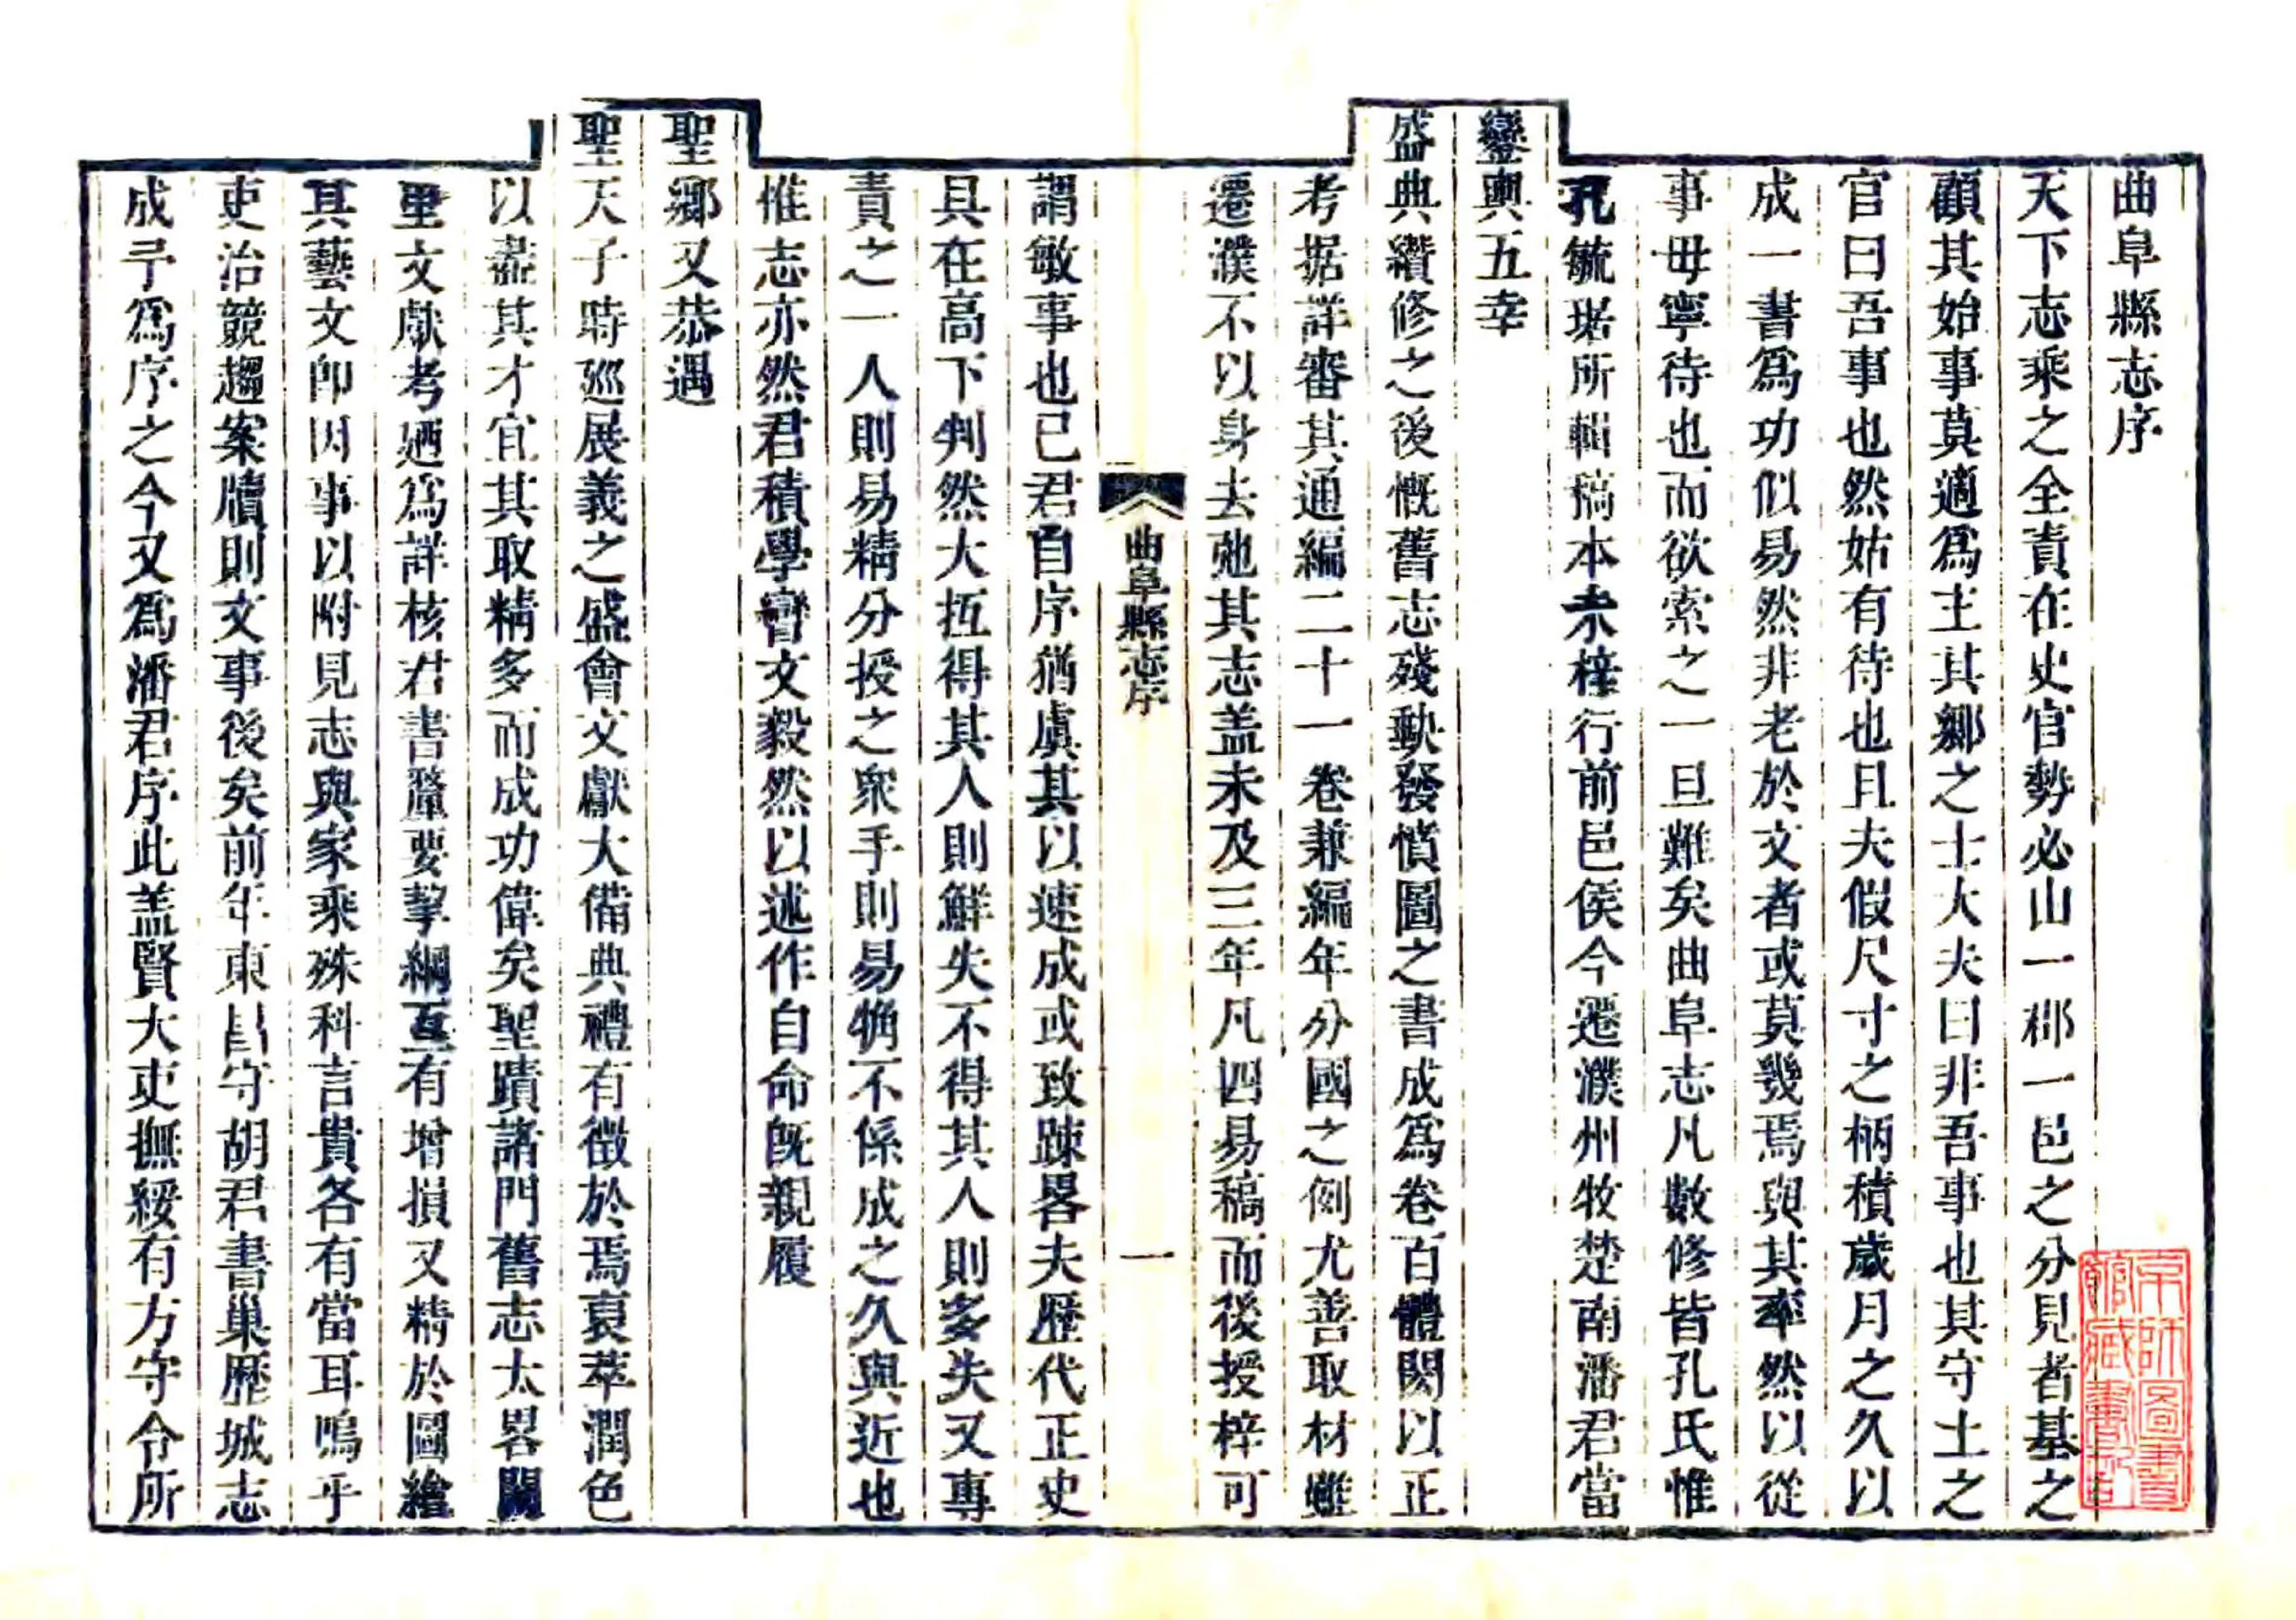 曲阜縣志序
天下志乘之全責在史官勢必山一郡一邑之分見者基之
顧其始事莫適爲主其鄉之士大夫曰非吾事也其守土之
官曰吾事也然姑有待也且夫假尺寸之柄積歲月之久以
成一書爲功似易然非老於文者或莫幾焉與其率然以從
事毋寧待也而欲索之一旦難矣曲阜志凡數修皆孔氏惟
孔毓琚所輯稿本未梓行前邑侯今遷濮州牧楚南潘君當
鑾輿五幸
盛典纘修之後慨舊志殘缺發憤圖之書成爲卷百體閎以正
考据詳審其通編二十一卷兼編年分國之例尤善取材雖
遷濮不以身去弛其志盖未及三年凡四易稿而後授梓可
曲阜縣志序
一
謂敏事也已君自序猶虞其以速成或致踈畧夫歷代正史
具在高下判然大抵得其人則鮮失不得其人則多失又專
責之一人則易精分授之衆手則易觕不係成之久與近也
惟志亦然君積學嗜文毅然以述作自命旣親履
聖鄉又恭遇
聖天子時廵展義之盛會文獻大備典禮有徵於焉裒萃潤色
以盡其才宜其取精多而成功偉矣聖蹟諸門舊志太畧闕
里文獻考廼爲詳核君書釐要挈綱互有增損又精於圖繪
其藝文卽因事以附見志與家乘殊科言貴各有當耳嗚乎
吏治競趨案牘則文事後矣前年東昌守胡君書巢歷城志
成予爲序之今又爲潘君序此盖賢大吏撫綏有方守令所